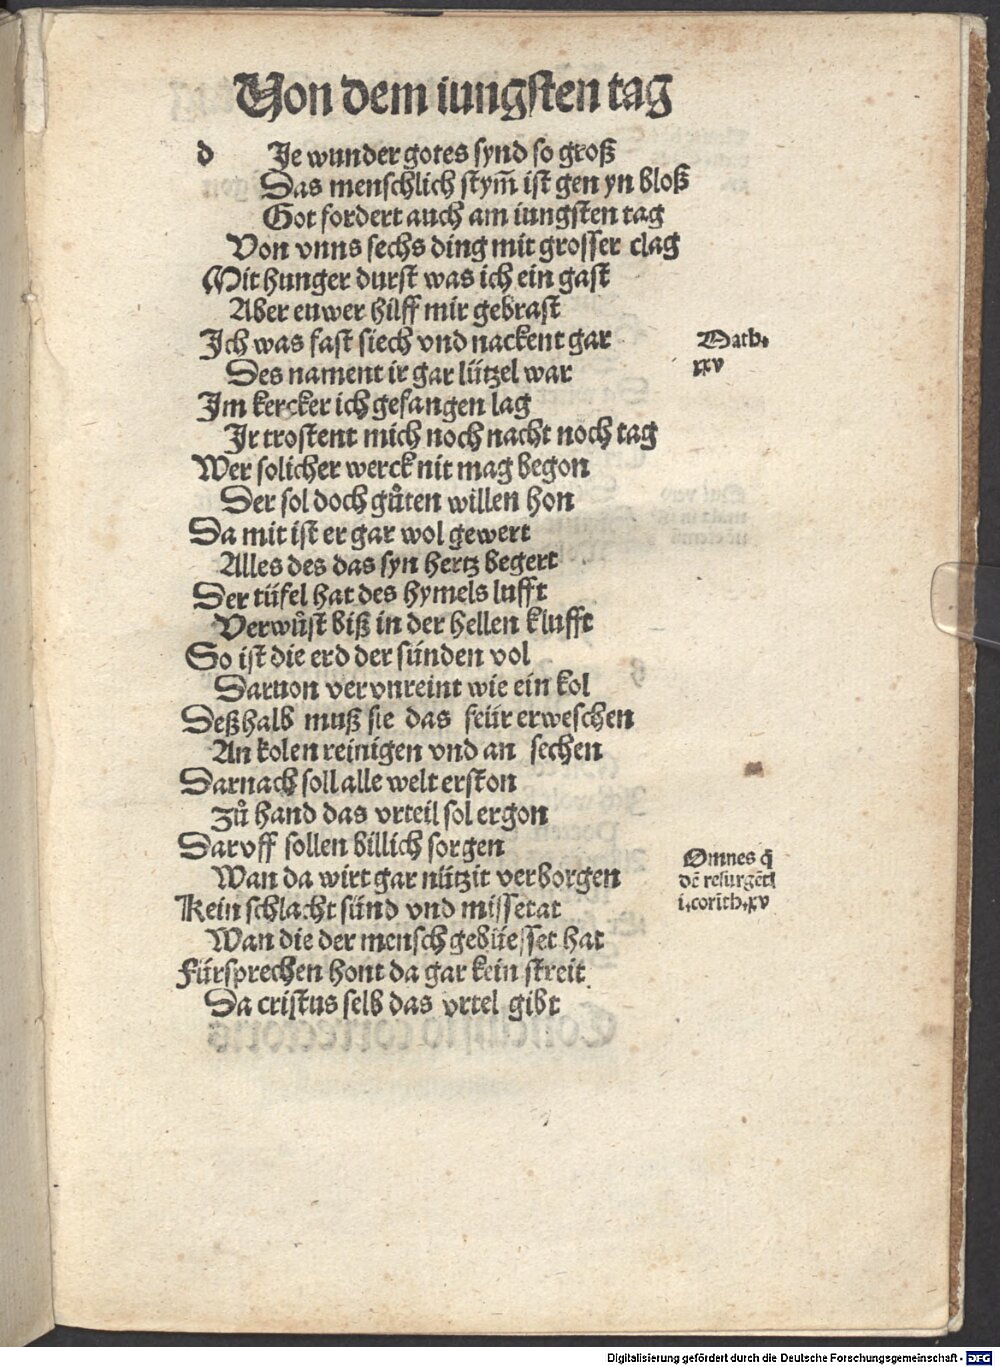 Von dem iungsten tag
d Je wunder gotes synd so groß
Das menschlich stym̃ ist gen yn bloß
Got fordert auch am iungsten tag
Von vnns sechs ding mit grosser clag
Mit hunger durst was ich ein gast
Aber euwer hilff mir gebrast
Ich was fast siech vnd nackent gar
Math.
xxv
Des nament ir gar lützel war
Im kercker ich gefangen lag
Ir trostent mich noch nacht noch tag
Wer solicher werck nit mag begon
Der sol doch gůten willen hon
Da mit ist er gar wol gewert
Alles des das syn hertz begert
Der tüfel hat des hymels lufft
Verwůst biß in der hellen klufft
So ist die erd der sünden vol
Daruon vervnreint wie ein kol
Deßhalb muß sie das feür erweschen
An kolen reinigen vnd an sechen
Darnach soll alle welt erston
Zů hand das vrteil sol ergon
Darvff sollen billich sorgen
Wan da wirt gar nützit verborgen
Omnes q̃
dẽ resurgẽt
i.corĩth.xv
Kein schlacht sünd vnd missetat
Wan die der mensch gebüesset hat
Fürsprechen hont da gar kein streit
Da cristus selb das vrtel gibt
Digitalisierung gefördert durch die Deutsche Forschungsgemeinschaft - DFG